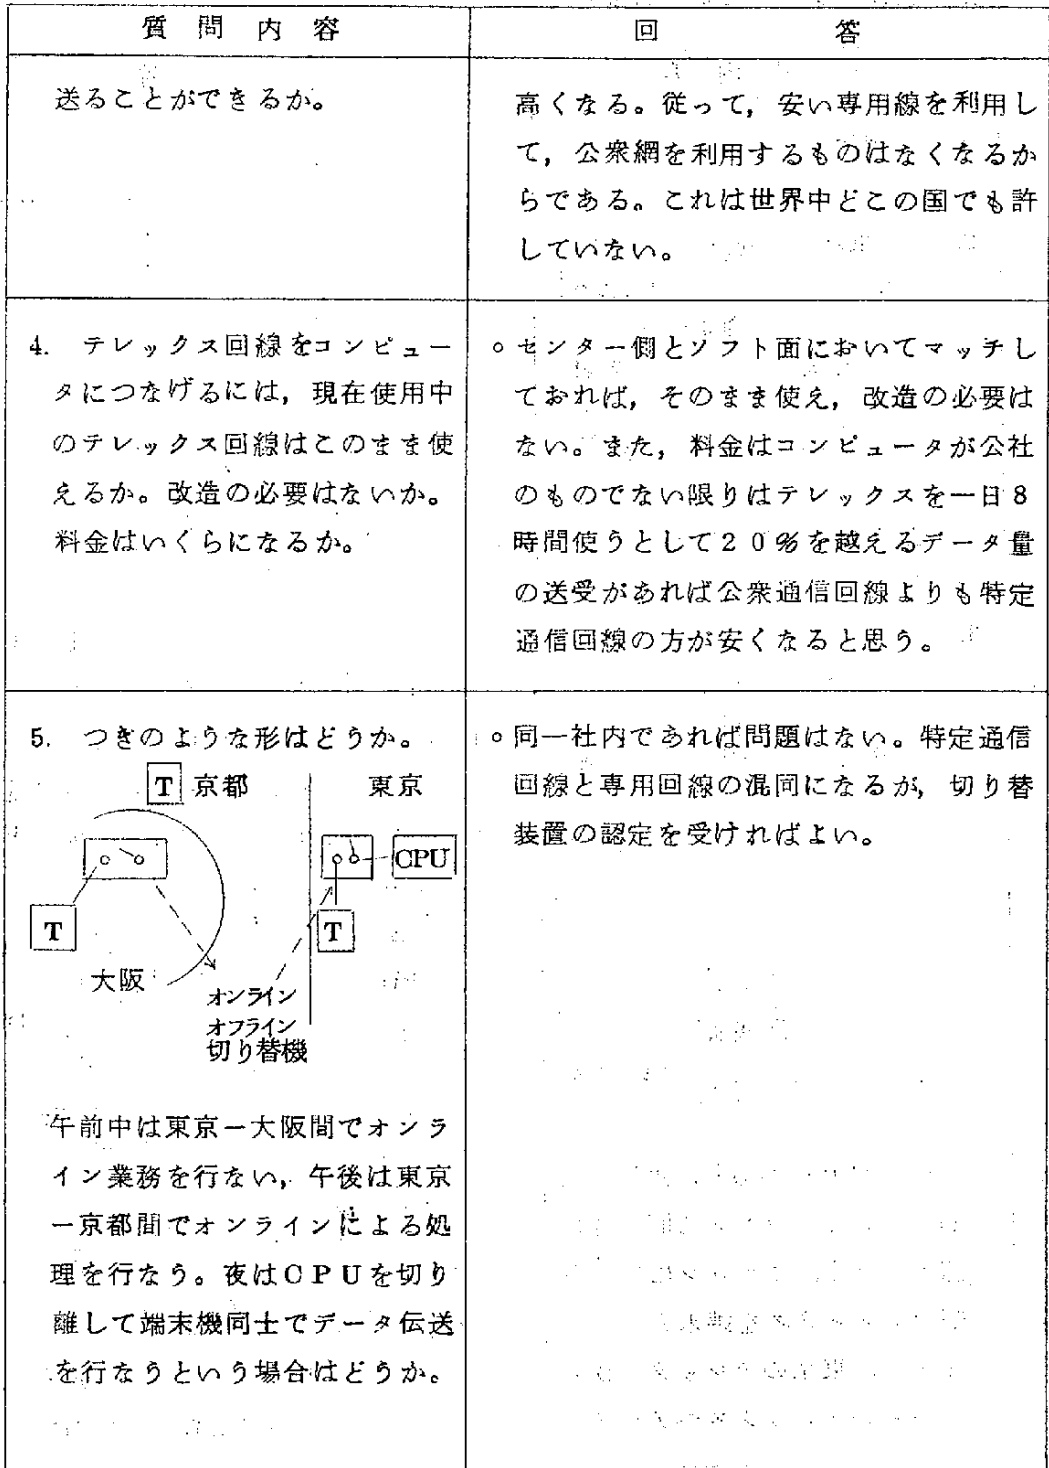 質問内容
回答
送ることができるか。
高くなる。従って，安い専用線を利用し
て，公衆網を利用するものはなくなるか
らである。これは世界中どこの国でも許
していない。
4. テレックス回線をコンピュー
タにつなげるには，現在使用中
のテレックス回線はこのまま使
えるか。改造の必要はないか。
料金はいくらになるか。
○センター側とソフト面においてマッチし
ておれば，そのまま使え，改造の必要は
ない。また，料金はコンピュータが公社
のものでない限りはテレックスを一日8
時間使うとして20%を越えるデータ量
の送受があれば公衆通信回線よりも特定
通信回線の方が安くなると思う。
5. つぎのような形はどうか。
T 京都
東京
CPU
T
T
大阪
オンライン
オフライン
切り替機
午前中は東京ー大阪間でオンラ
イン業務を行ない，午後は東京
ー京都間でオンラインによる処
理を行なう。夜はCPUを切り
離して端末機同士でデータ伝送
を行なうという場合はどうか。
○同一社内であれば問題はない。特定通信
回線と専用回線の混同になるが，切り替
装置の認定を受ければよい。